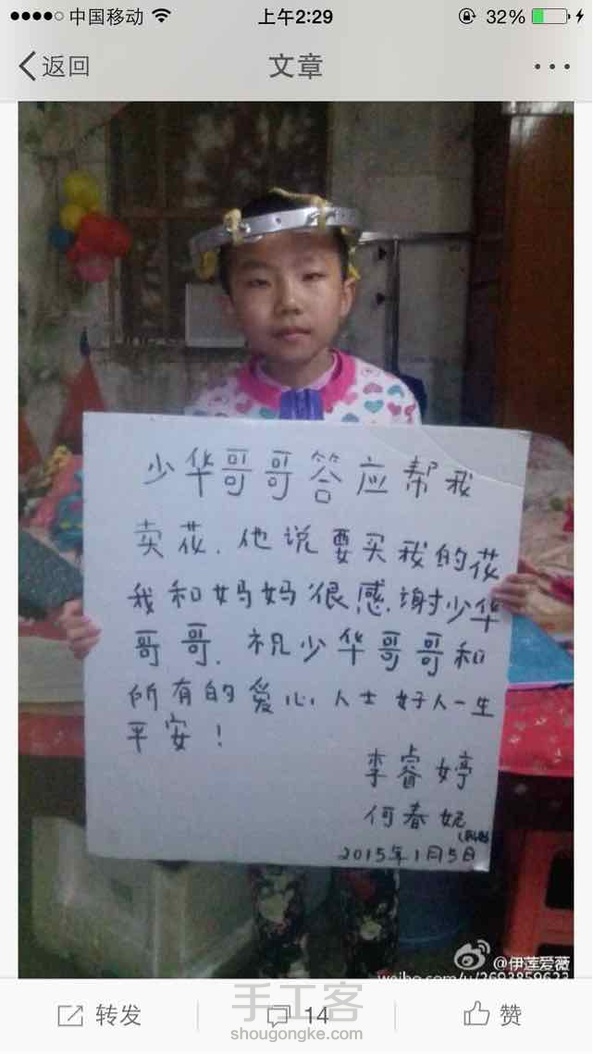 中国移动 上午2:29 32%
返回 文章
少华哥哥答应帮我
卖花.他说要买我的花
我和妈妈很感谢少华
哥哥.祝少华哥哥和
所有的爱心人士好人一生
平安！
李睿婷
何春妮
2015年1月5日
@伊莲爱薇
weibo.com/u/2693859623
转发 14 赞
手工客
shougongke.com